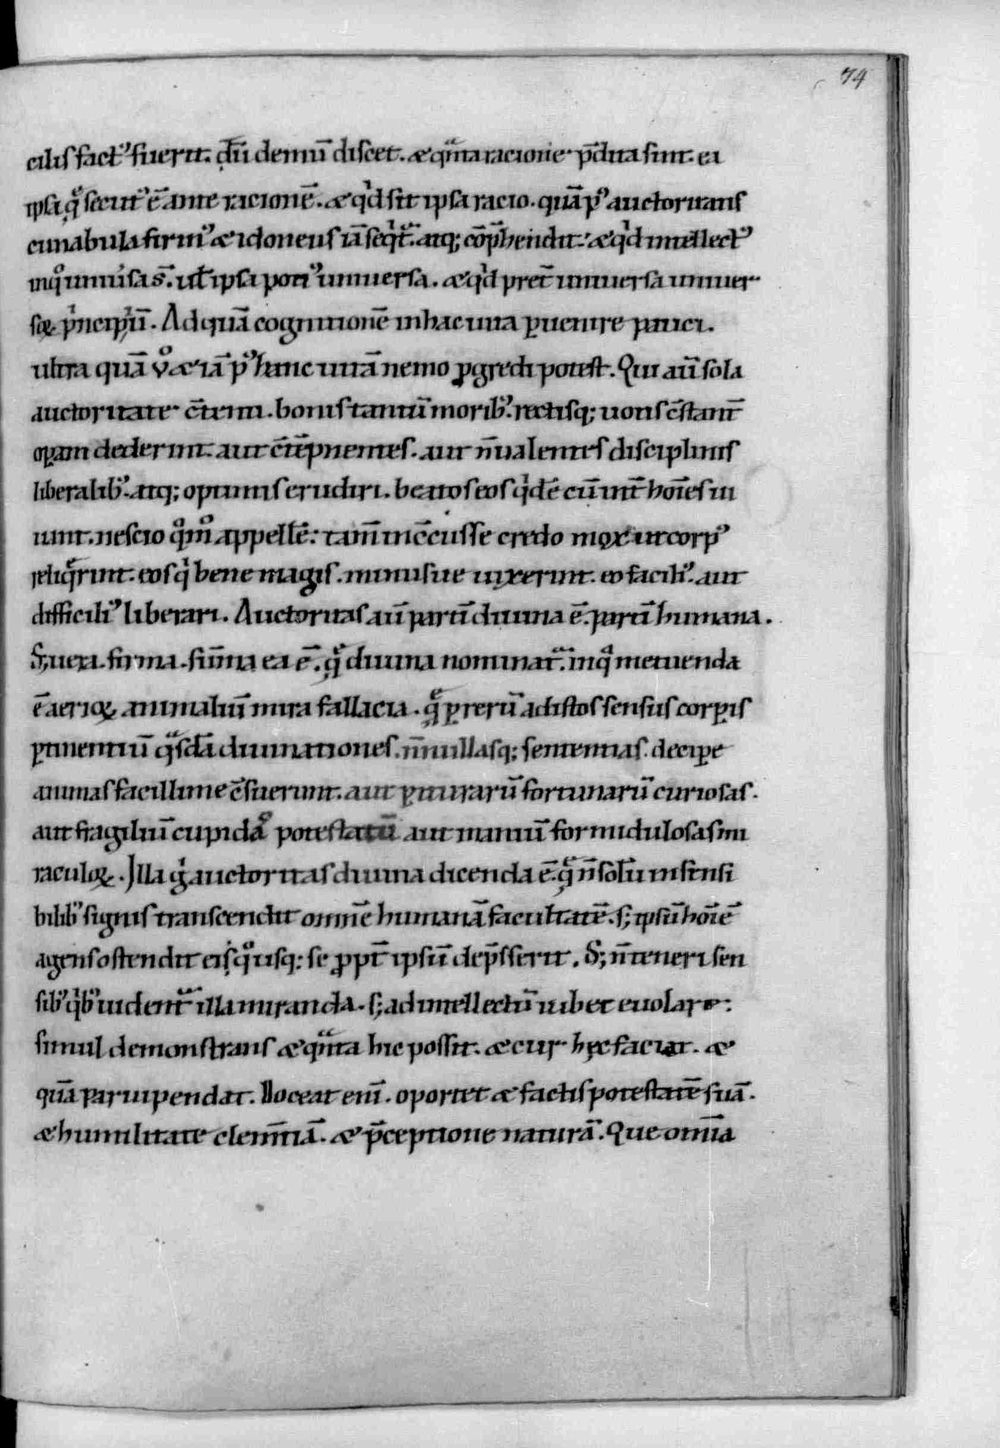 74
cilis fact᾽ fuerit. dū demū discet. & qͣnta racione p̄dita sint. ea
ipsa q̨̊ secut᾽ ē ante racionē. & qͥd sit ipsa racio. quā p᾽ auctoritatis
cunabula firm᾽ & idoneus iā seqͥt᷑. atq; cōp̄hendit. & qͥd intellect᾽
inqͦ uniůsa s̄. ut̄ ipsa poti᾽ uniuersa. & qͥd pret̄ uniuersa uniuer
soꝝ pͥncipiū. Ad quā cognitionē in hac uita ꝑuenire pauci.
ultra quā v̊ & iā p᾽ hanc uitā nemo ꝓgredi potest. Qui aū sola
auctoritate c̄tenti. bonis tantū morib᾽. rectisq; uotis c̄stant̄
oꝑam dederint. aut c̄tēpnentes. aut n̄ ualentes disciplinis
liberalib᾽. atq; optimis erudiri. beatos eos qͥdē cū int̄ hoīes ui
uunt. nescio qͦmͦ appellē. tam̄ inc̄cusse credo mox ut corp᾽
reliqͥrint. eos qͥ bene magis. minusue uixerint. eo facili᾽. aut
difficili᾽ liberari. Auctoritas aū partī diuina ē. partī humana.
S; uera. firma. sūma ea ē. q̨̄ diuina nominat᷑. inqͣ metuenda
ē aerioꝝ animaliū mira fallacia. q̨̄ ꝑ rerū ad istos sensus corꝑis
ꝑtinentiū qͣsdā diuinationes. n̄nullasq; sententias. deciꝑe
animas facillime c̄suerunt. aut ꝑiturarū fortunarū curiosas.
aut fragiliū cupidaͦ potestatū aut inaniū formidulosas mi
raculoꝝ. Illa gͦ auctoritas diuina dicenda ē. q̨̄ n̄ solū in sensi
bilib᾽ signis transcendit omnē humanā facultatē. s; ipsū hoīē
agens ostendit ei qͦusq; se ꝓpt̄ ipsū dep̄sserit. S; n̄ teneri sen
sib᾽ qͥb᾽ uident᷑ illa miranda. s; ad intellectū iubet euolare:
simul demonstrans & qͣnta hic possit. & cur hęc faciat. &
quā paruipendat. Doceat enī. oportet & factis potestatē suā.
& humilitate clem̄tiā. & p̄ceptione naturā. Que omīa